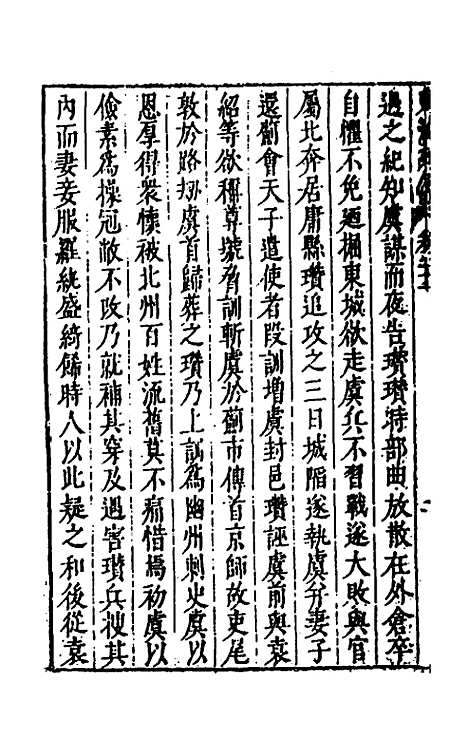 過之紀知虞謀而夜告瓚瓚時部曲放散在外倉卒
自懼不免廼掘東城欲走虞兵不習戰遂大敗與官
屬北奔居庸縣瓚追攻之三日城陷遂執虞并妻子
還薊會天子遣使者段訓增虞封邑瓚誣虞前與袁
紹等欲稱尊號脅訓斬虞於薊市傳首京師故吏尾
敦於路刼虞首歸葬之瓚乃上訓為幽州刺史虞以
恩厚得衆懷被北州百姓流舊莫不痛惜焉初虞以
儉素為操冠敝不改乃就補其穿及遇害瓚兵搜其
內而妻妾服羅紈盛綺餙時人以此疑之和後從袁